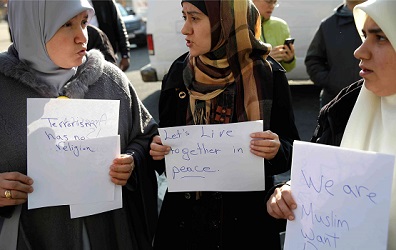 Terrorism
has no
religion
Let's Live
together in
peace
We are
Muslim
Want